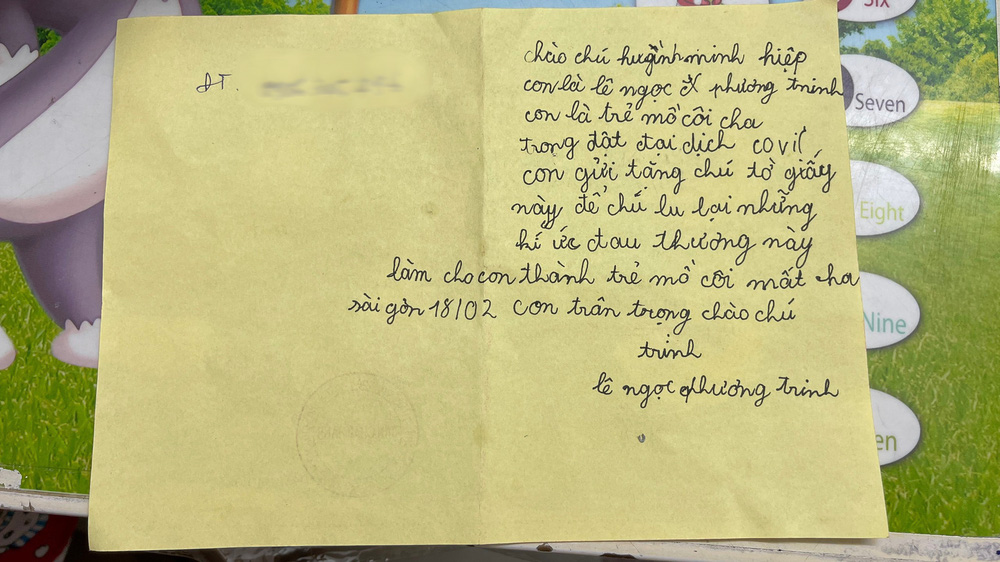 ĐT.
chào chú huỳnh minh hiệp
con là lê ngọc phương trinh
con là trẻ mồ côi cha
trong đật đại dịch covil
con gửi tặng chú tờ giấy
này để chú lu lại những
kí ức đau thương này
làm cho con thành trẻ mồ côi mất cha
sài gòn 18/02 con trân trọng chào chú
trinh
lê ngọc phương trinh
Six
Seven
Eight
Nine
en